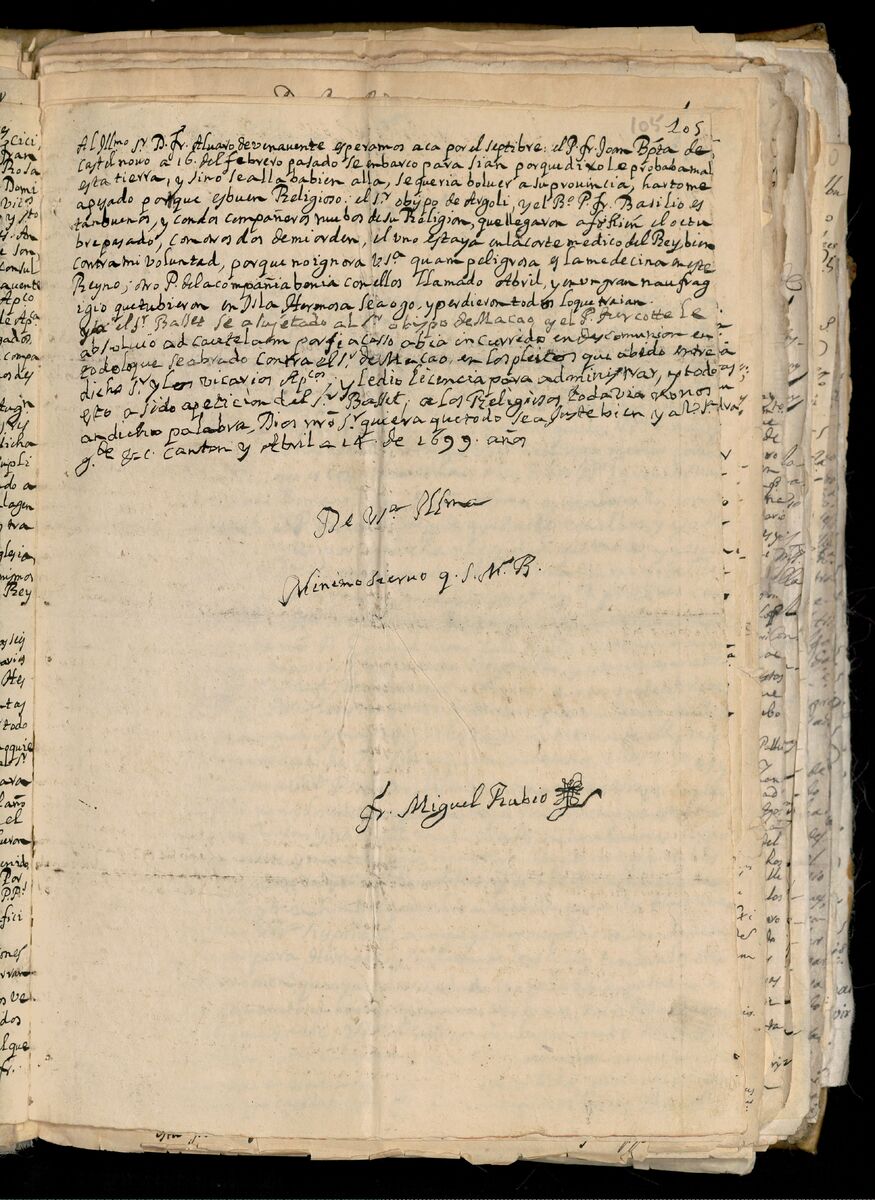 105
105
Al Illmo sr D. Fr. Alvaro de venavente esperamos aca por el septibre: el P. fr. Joan Bẞta de
Castelnovo a 16. del febrero pasado se embarco para Sian porque dixo le probaba mal
esta tierra, y sino se allaba bien alla, se queria bolver a su provincia, harto me
a pesado porque es buen Religioso; el sr. obispo de Argoli, y el Rº. P. Fr. Basilio es
tan buenos, y con dos compañeros nuebos de su Religion, que llegaron a fokien el octu
bre pasado, con otros dos de mi orden, el uno esta ya en la corte medico del Rey bien
contra mi voluntad, porque no ignora V Sª. quam peligrosa es la medecina en este
Reyno; otro P. de la compañia benia con ellos llamado Abril, y en un gran naufra
gio que tubieron en Isla Hermosa se a ogo, y perdieron todo lo que traian.
Ya el Sr. Basset se a sujetado al Sr. obispo de Macao, y el P. Turcotte le
absolvio ad cautelam por si acasso abia incurrido en descomunion en
todo lo que se a obrado contra el Sr. de Macao, en los pleitos que a bido entre
dicho Sr. y los vicarios Apcos, y le dio licencia para administrar, y todo
esto a sido a peticion del Sr. Basset; a los Religiosos todavia no nos
an dicho palabra, Dios nro Sr. quiera que todo se ajuste bien y a V Sª
gde &c. Canton y Abril a 14 de 1699 años
De V Sª Illma
Minimo siervo q. S. M. B.
fr. Miguel Rubio